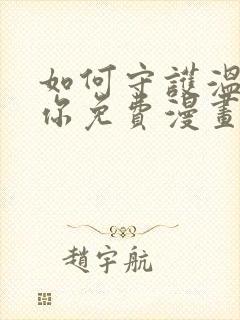 如何守護溫
你免費漫畫
趙宇航